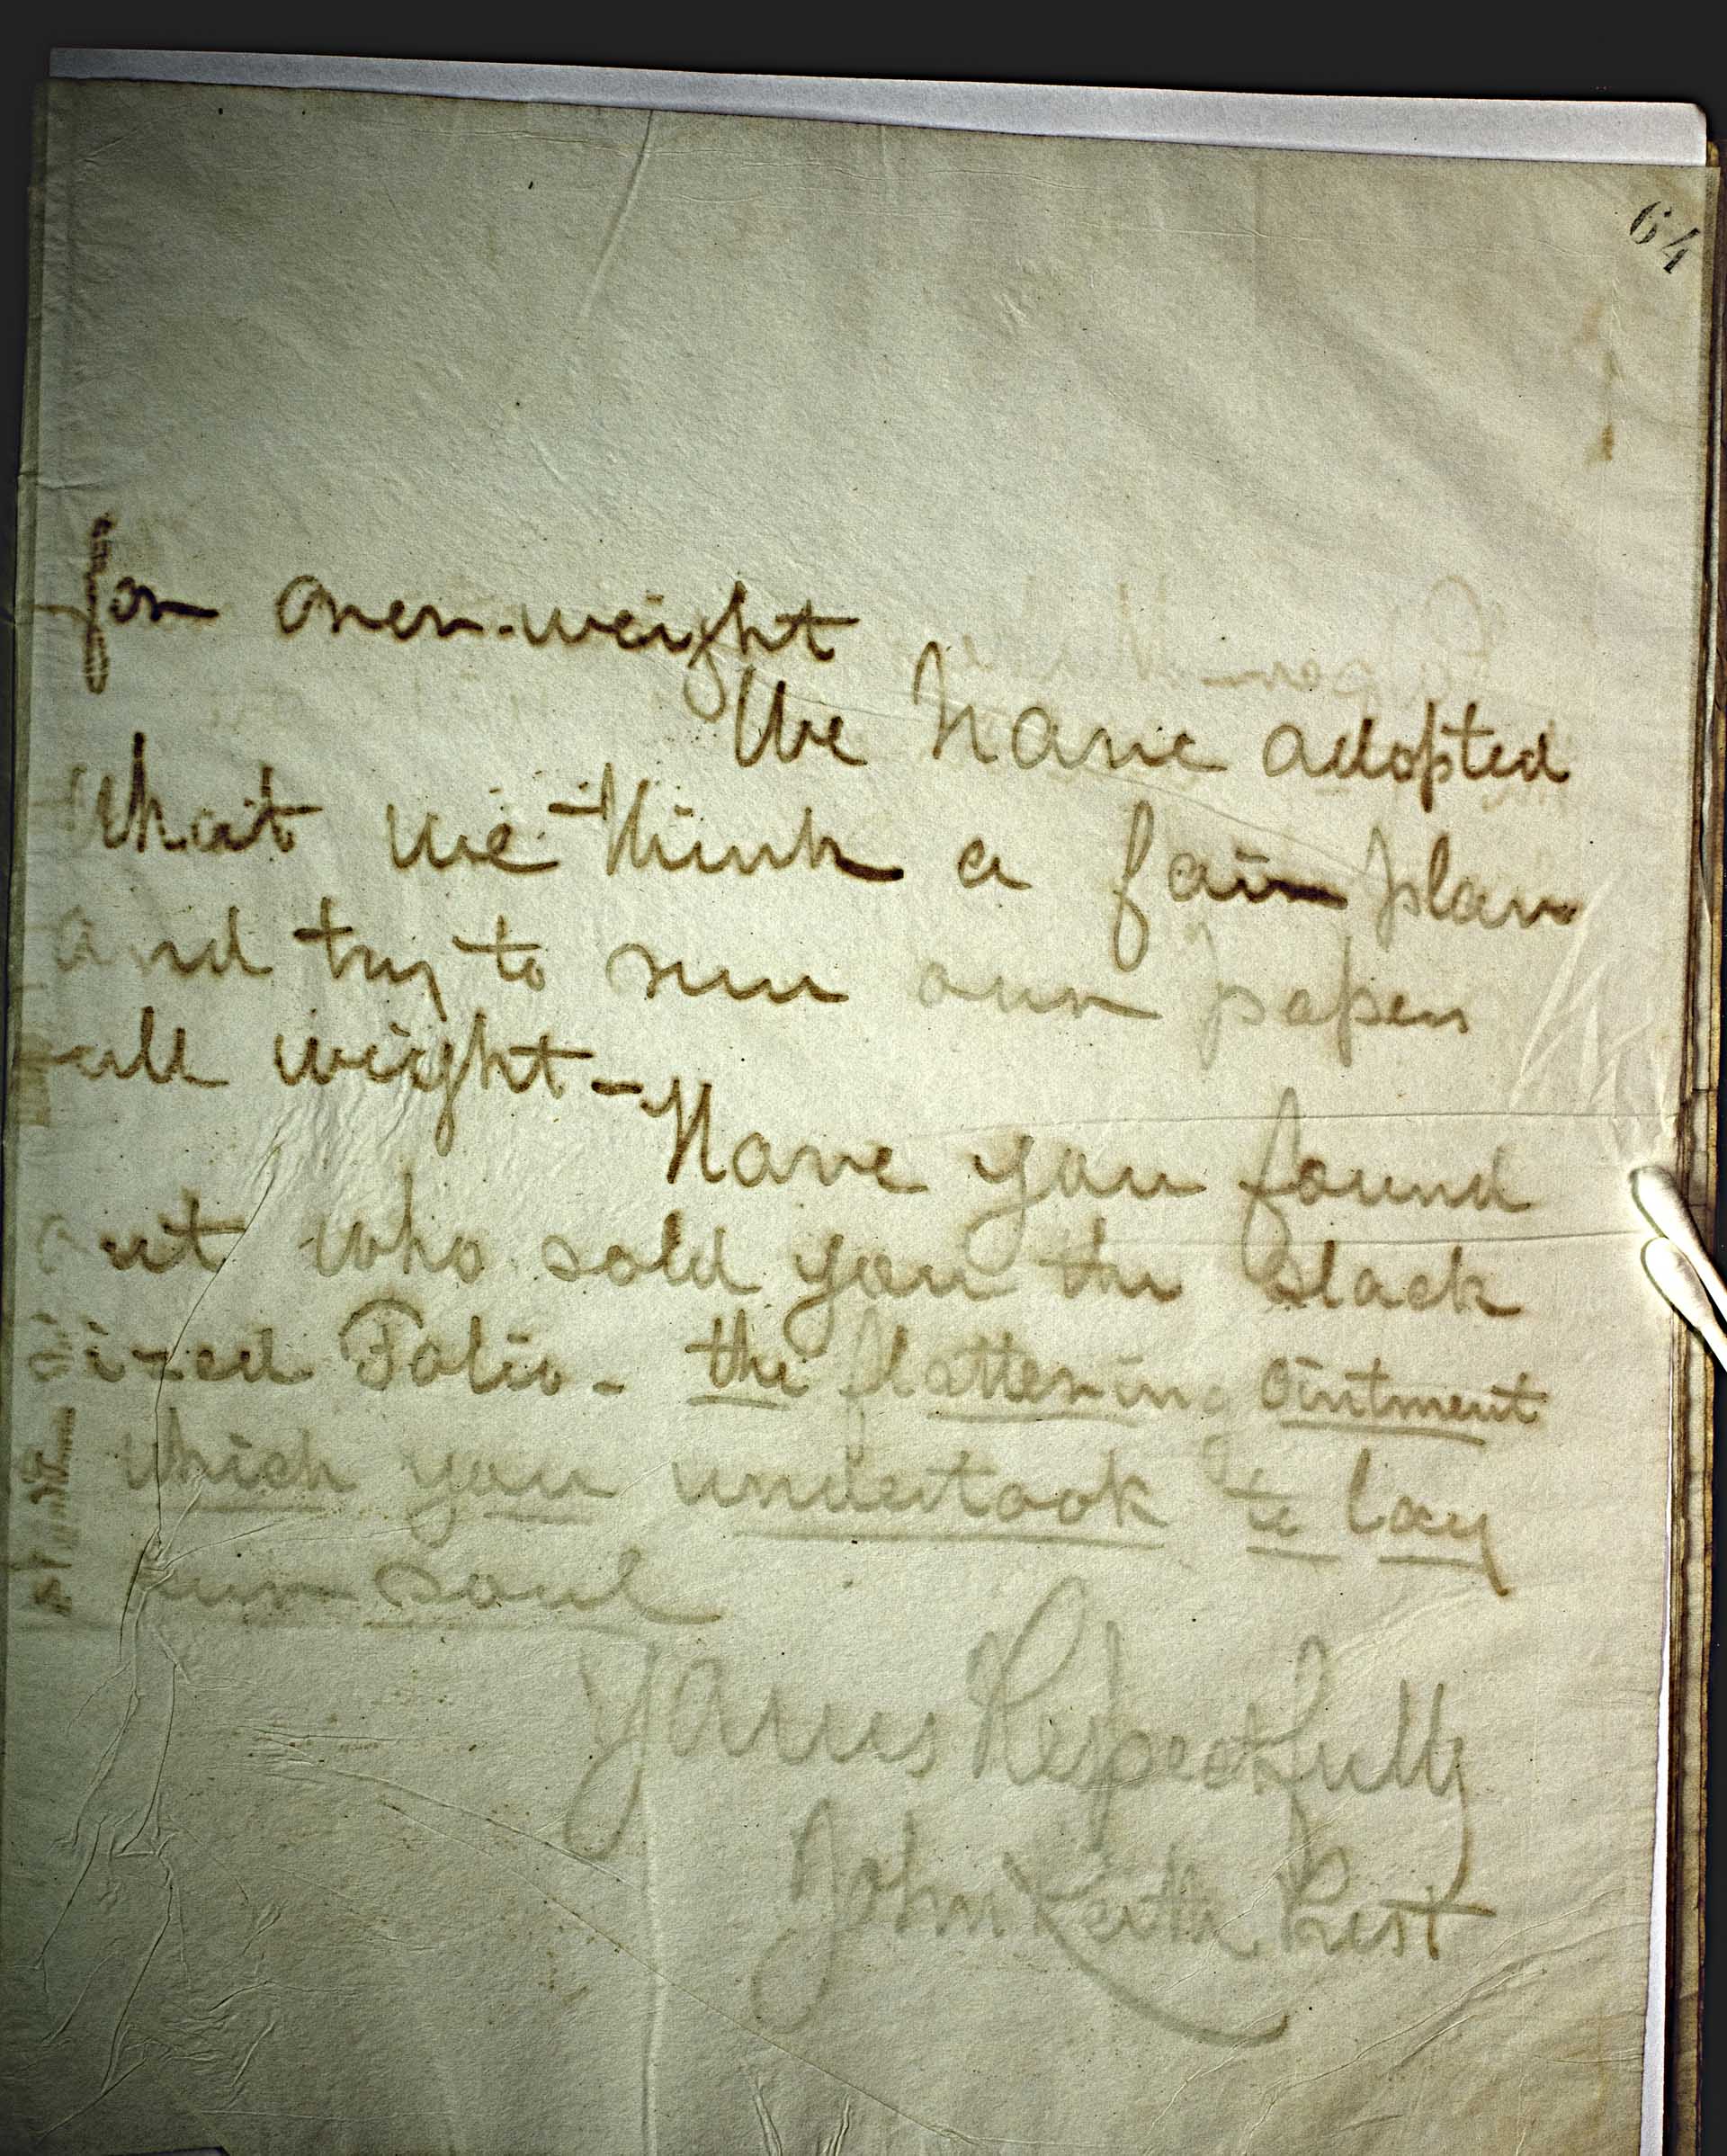 64
for over-weight
We have adopted
what we think a fair plan
and try to run our paper
all weight - Have you found
out who sold you the slack
sized Folio - the flattering ointment
which you undertook to lay
our soul
Yours Respectfully
John Keith Prest